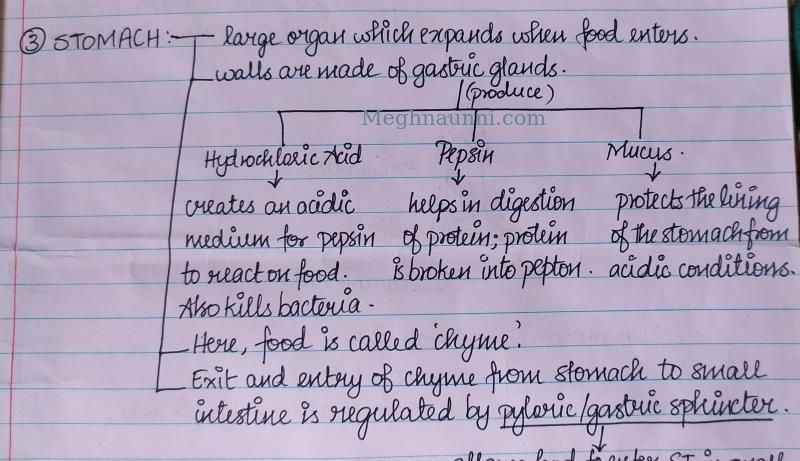 ③ STOMACH:- large organ which expands when food enters.
walls are made of gastric glands.
(produce)
Meghnaunni.com
Hydrochloric Acid Pepsin Mucus.
creates an acidic helps in digestion protects the lining
medium for pepsin of protein; protein of the stomach from
to react on food. is broken into pepton. acidic conditions.
Also kills bacteria.
Here, food is called 'chyme'.
Exit and entry of chyme from stomach to small
intestine is regulated by pyloric/gastric sphincter.